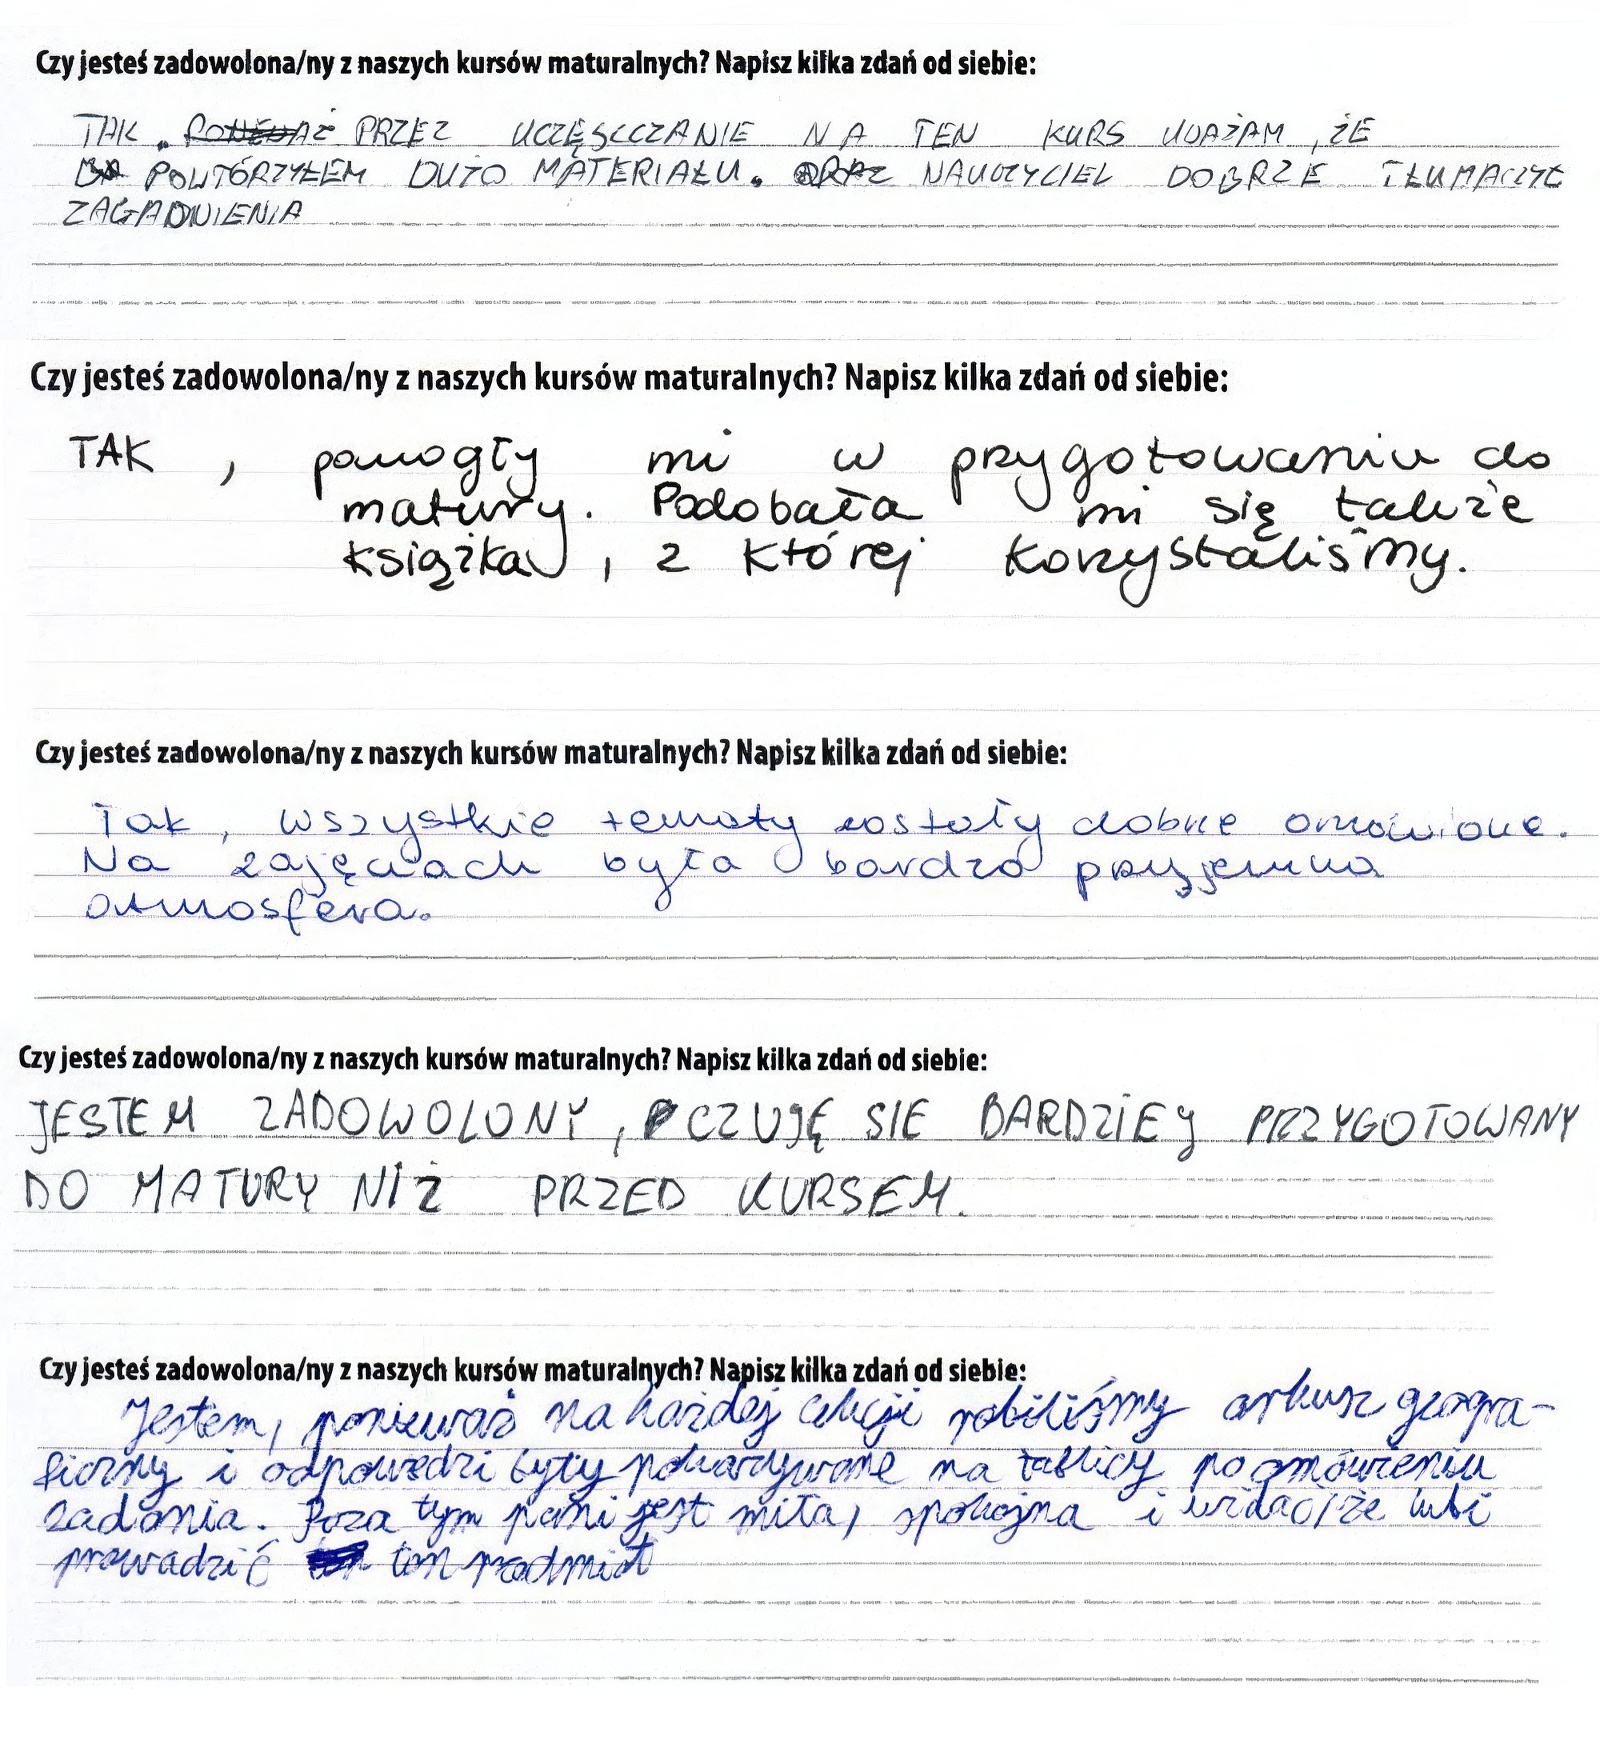 Czy jesteś zadowolona/ny z naszych kursów maturalnych? Napisz kilka zdań od siebie:
TAK. PONIEWAŻ PRZEZ UCZĘSZCZANIE NA TEN KURS UWAŻAM, ŻE
POWTÓRZYŁEM DUŻO MATERIAŁU. ORAZ NAUCZYCIEL DOBRZE TŁUMACZYŁ
ZAGADNIENIA
Czy jesteś zadowolona/ny z naszych kursów maturalnych? Napisz kilka zdań od siebie:
TAK, pomogły mi w przygotowaniu do
matury. Podobała mi się także
książka, z której korzystaliśmy.
Czy jesteś zadowolona/ny z naszych kursów maturalnych? Napisz kilka zdań od siebie:
Tak, wszystkie tematy zostały dobrze omówione.
Na zajęciach była bardzo przyjemna
atmosfera.
Czy jesteś zadowolona/ny z naszych kursów maturalnych? Napisz kilka zdań od siebie:
JESTEM ZADOWOLONY, CZUJĘ SIE BARDZIEJ PRZYGOTOWANY
DO MATURY NIŻ PRZED KURSEM.
Czy jesteś zadowolona/ny z naszych kursów maturalnych? Napisz kilka zdań od siebie:
Jestem, ponieważ na każdej lekcji robiliśmy arkusz geogra-
ficzny i odpowiedzi były pokazywane na tablicy po omówieniu
zadania. Poza tym pani jest miła, spokojna i widać, że lubi
prowadzić ten przedmiot